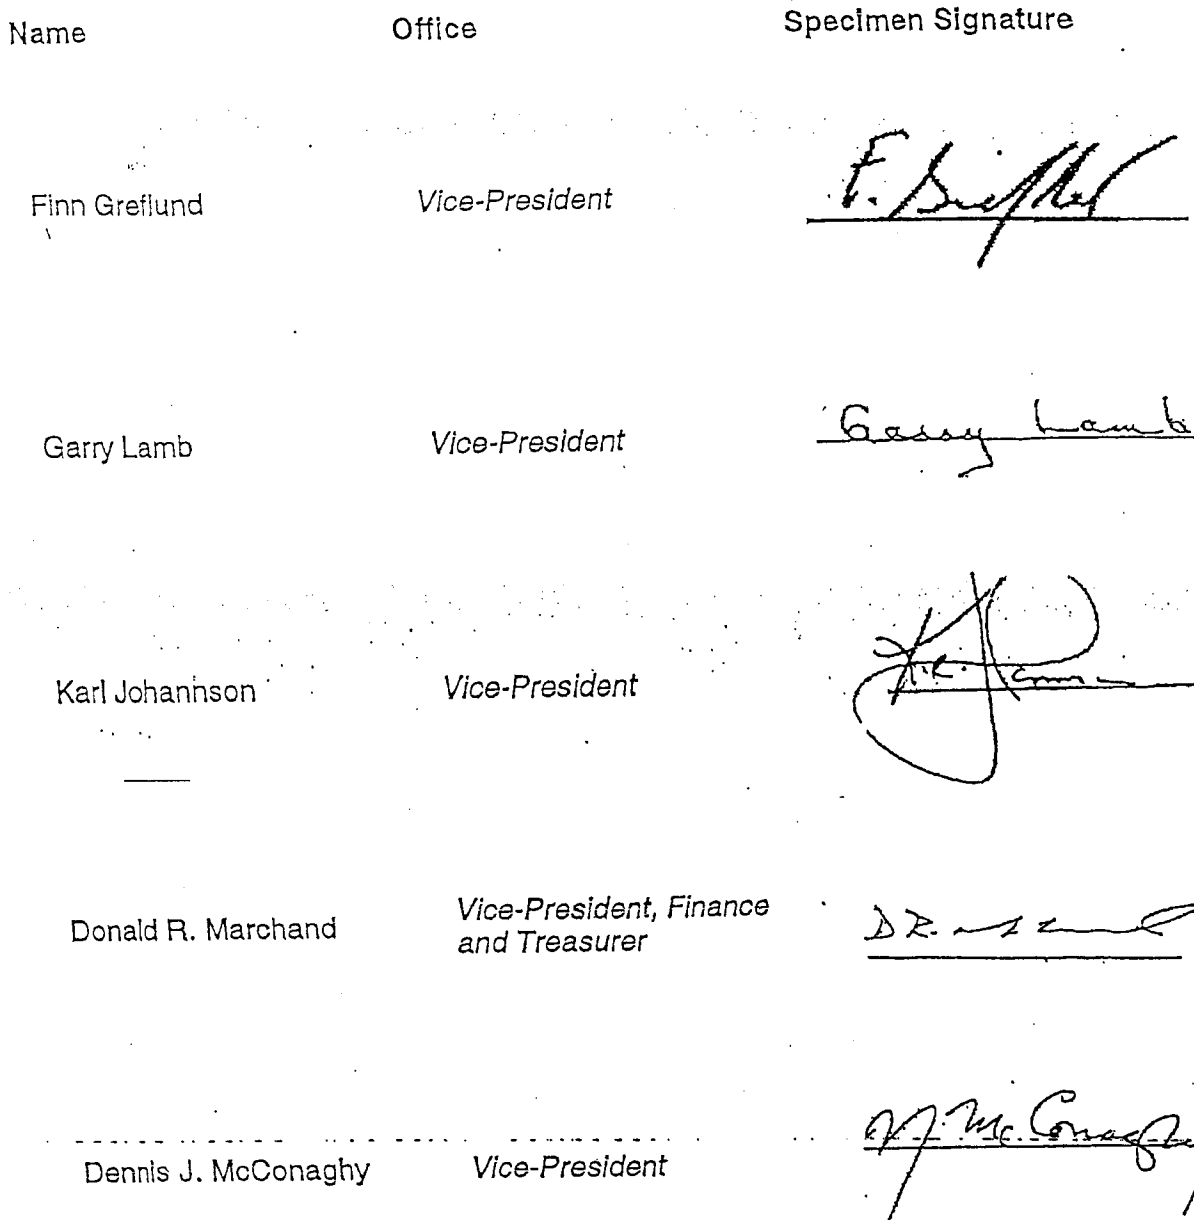 Name Office Specimen Signature
Finn Greflund Vice-President F.
Garry Lamb Vice-President Garry Lamb
Karl Johannson Vice-President
Donald R. Marchand Vice-President, Finance
and Treasurer D R.
Dennis J. McConaghy Vice-President McConaghy